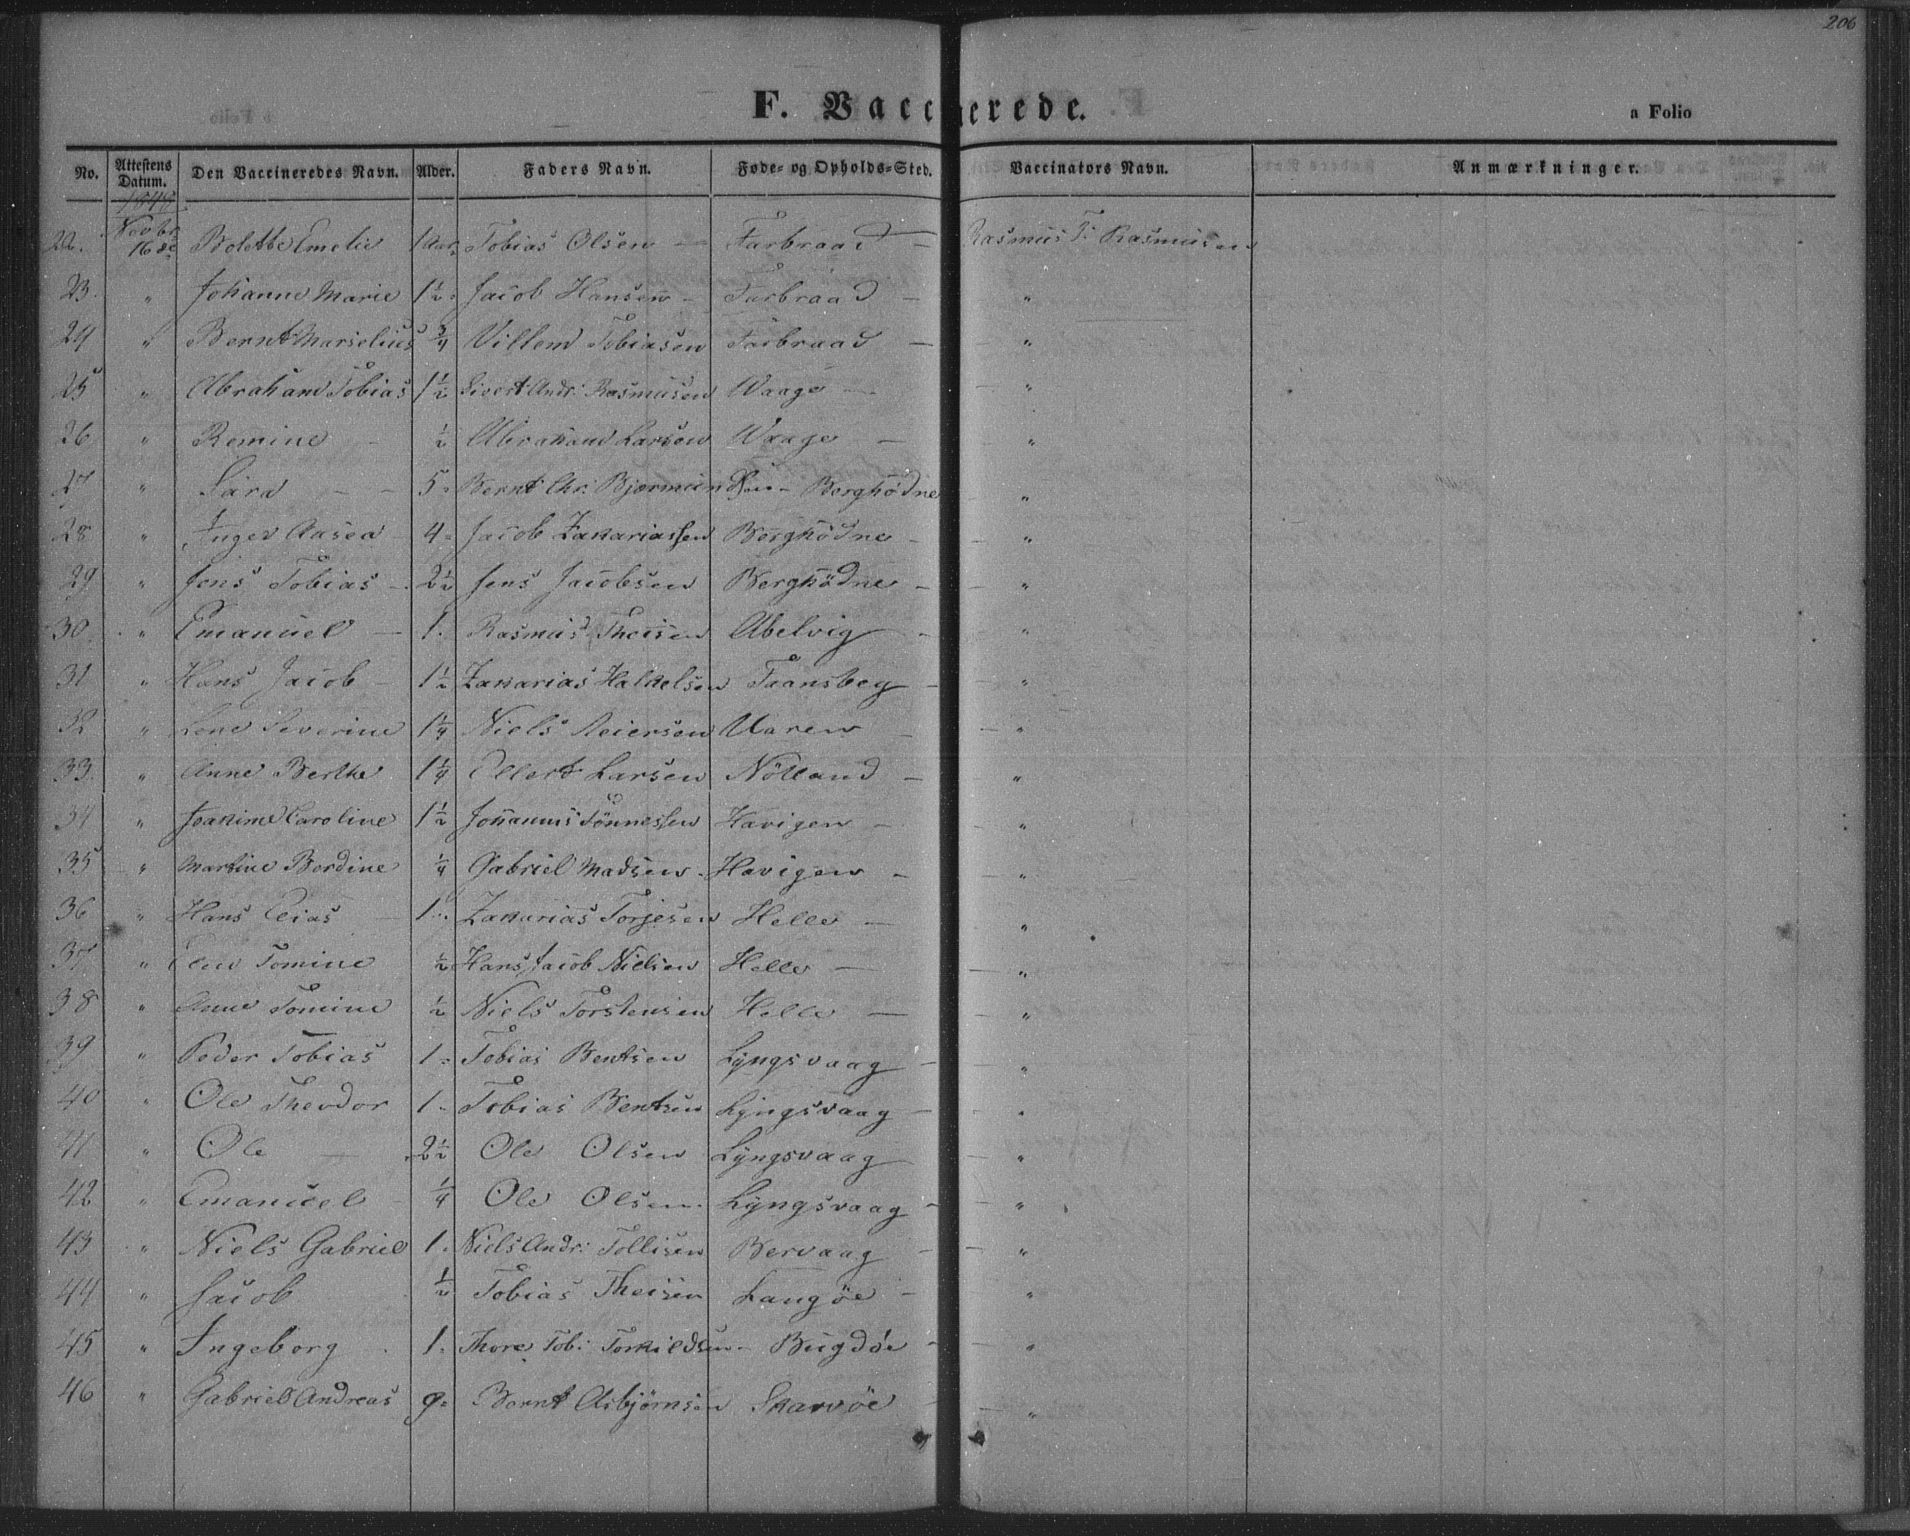 206
F. Vaccinerede.
a Folio
No. Attestens Datum. Den Vaccineredes Navn. Alder. Faders Navn. Føde- og Opholds-Sted. Vaccinators Navn. Anmærkninger.
Novbr
22. 16de Bolette Emelie 1 Aar. Tobias Olsen — Farbraad — Rasmus T. Rasmusen
23. " Johanne Marie 1½ Jacob Hansen — Farbraad — "
24 " Bernt Marselius ¾ Villem Tobiasen Farbraad — "
25 " Abraham Tobias 1½ Sivert Andr: Rasmusen Waage — "
26 " Remine — ½ Abraham Larsen Waage — "
27 " Sara — — 5 Bernt Chr: Bjormunsen — Berghödne "
28 " Inger Aasea 4 Jacob Zakariassen Berghödne — "
29 " Jens Tobias — 2½ Jens Jacobsen Berghödne — "
30. " Emanuel — 1. Rasmus Theisen Abelvig — "
31 " Hans Jacob — 1½ Zakarias Halkelsen Taansbeg — "
32 " Lene Severine 1¼ Niels Reiersen Uaren — "
33. " Anne Berthe 1¼ Ellert Larsen Nölland — "
34 " Joakime Caroline 1½ Johannis Tönnessen Havigen — "
35 " Martine Bordine ¼ Gabriel Madsen. Havigen — "
36 " Hans Elias — 1. Zakarias Torjesen Helle — "
37 " Elen Tomine ½ Hans Jacob Nielsen Helle — "
38 " Anne Tomine ½ Niels Torstensen Helle — "
39 " Peder Tobias 1 Tobias Bentsen Lyngsvaag — "
40 " Ole Theodor 1 Tobias Bentsen Lyngsvaag — "
41 " Ole — 2½ Ole Olsen Lyngsvaag — "
42 " Emanuel — ¼ Ole Olsen. Lyngsvaag — "
43 " Niels Gabriel 1. Niels Andr: Tollisen Bervaag — "
44 " Jacob ½ Tobias Theisen Langöe — "
45 " Ingeborg . 1. Thore Tob: Torkildsen — Bugdöe — "
46 " Gabriel Andreas 9 Bernt Asbjörnsen Skarvöe — "